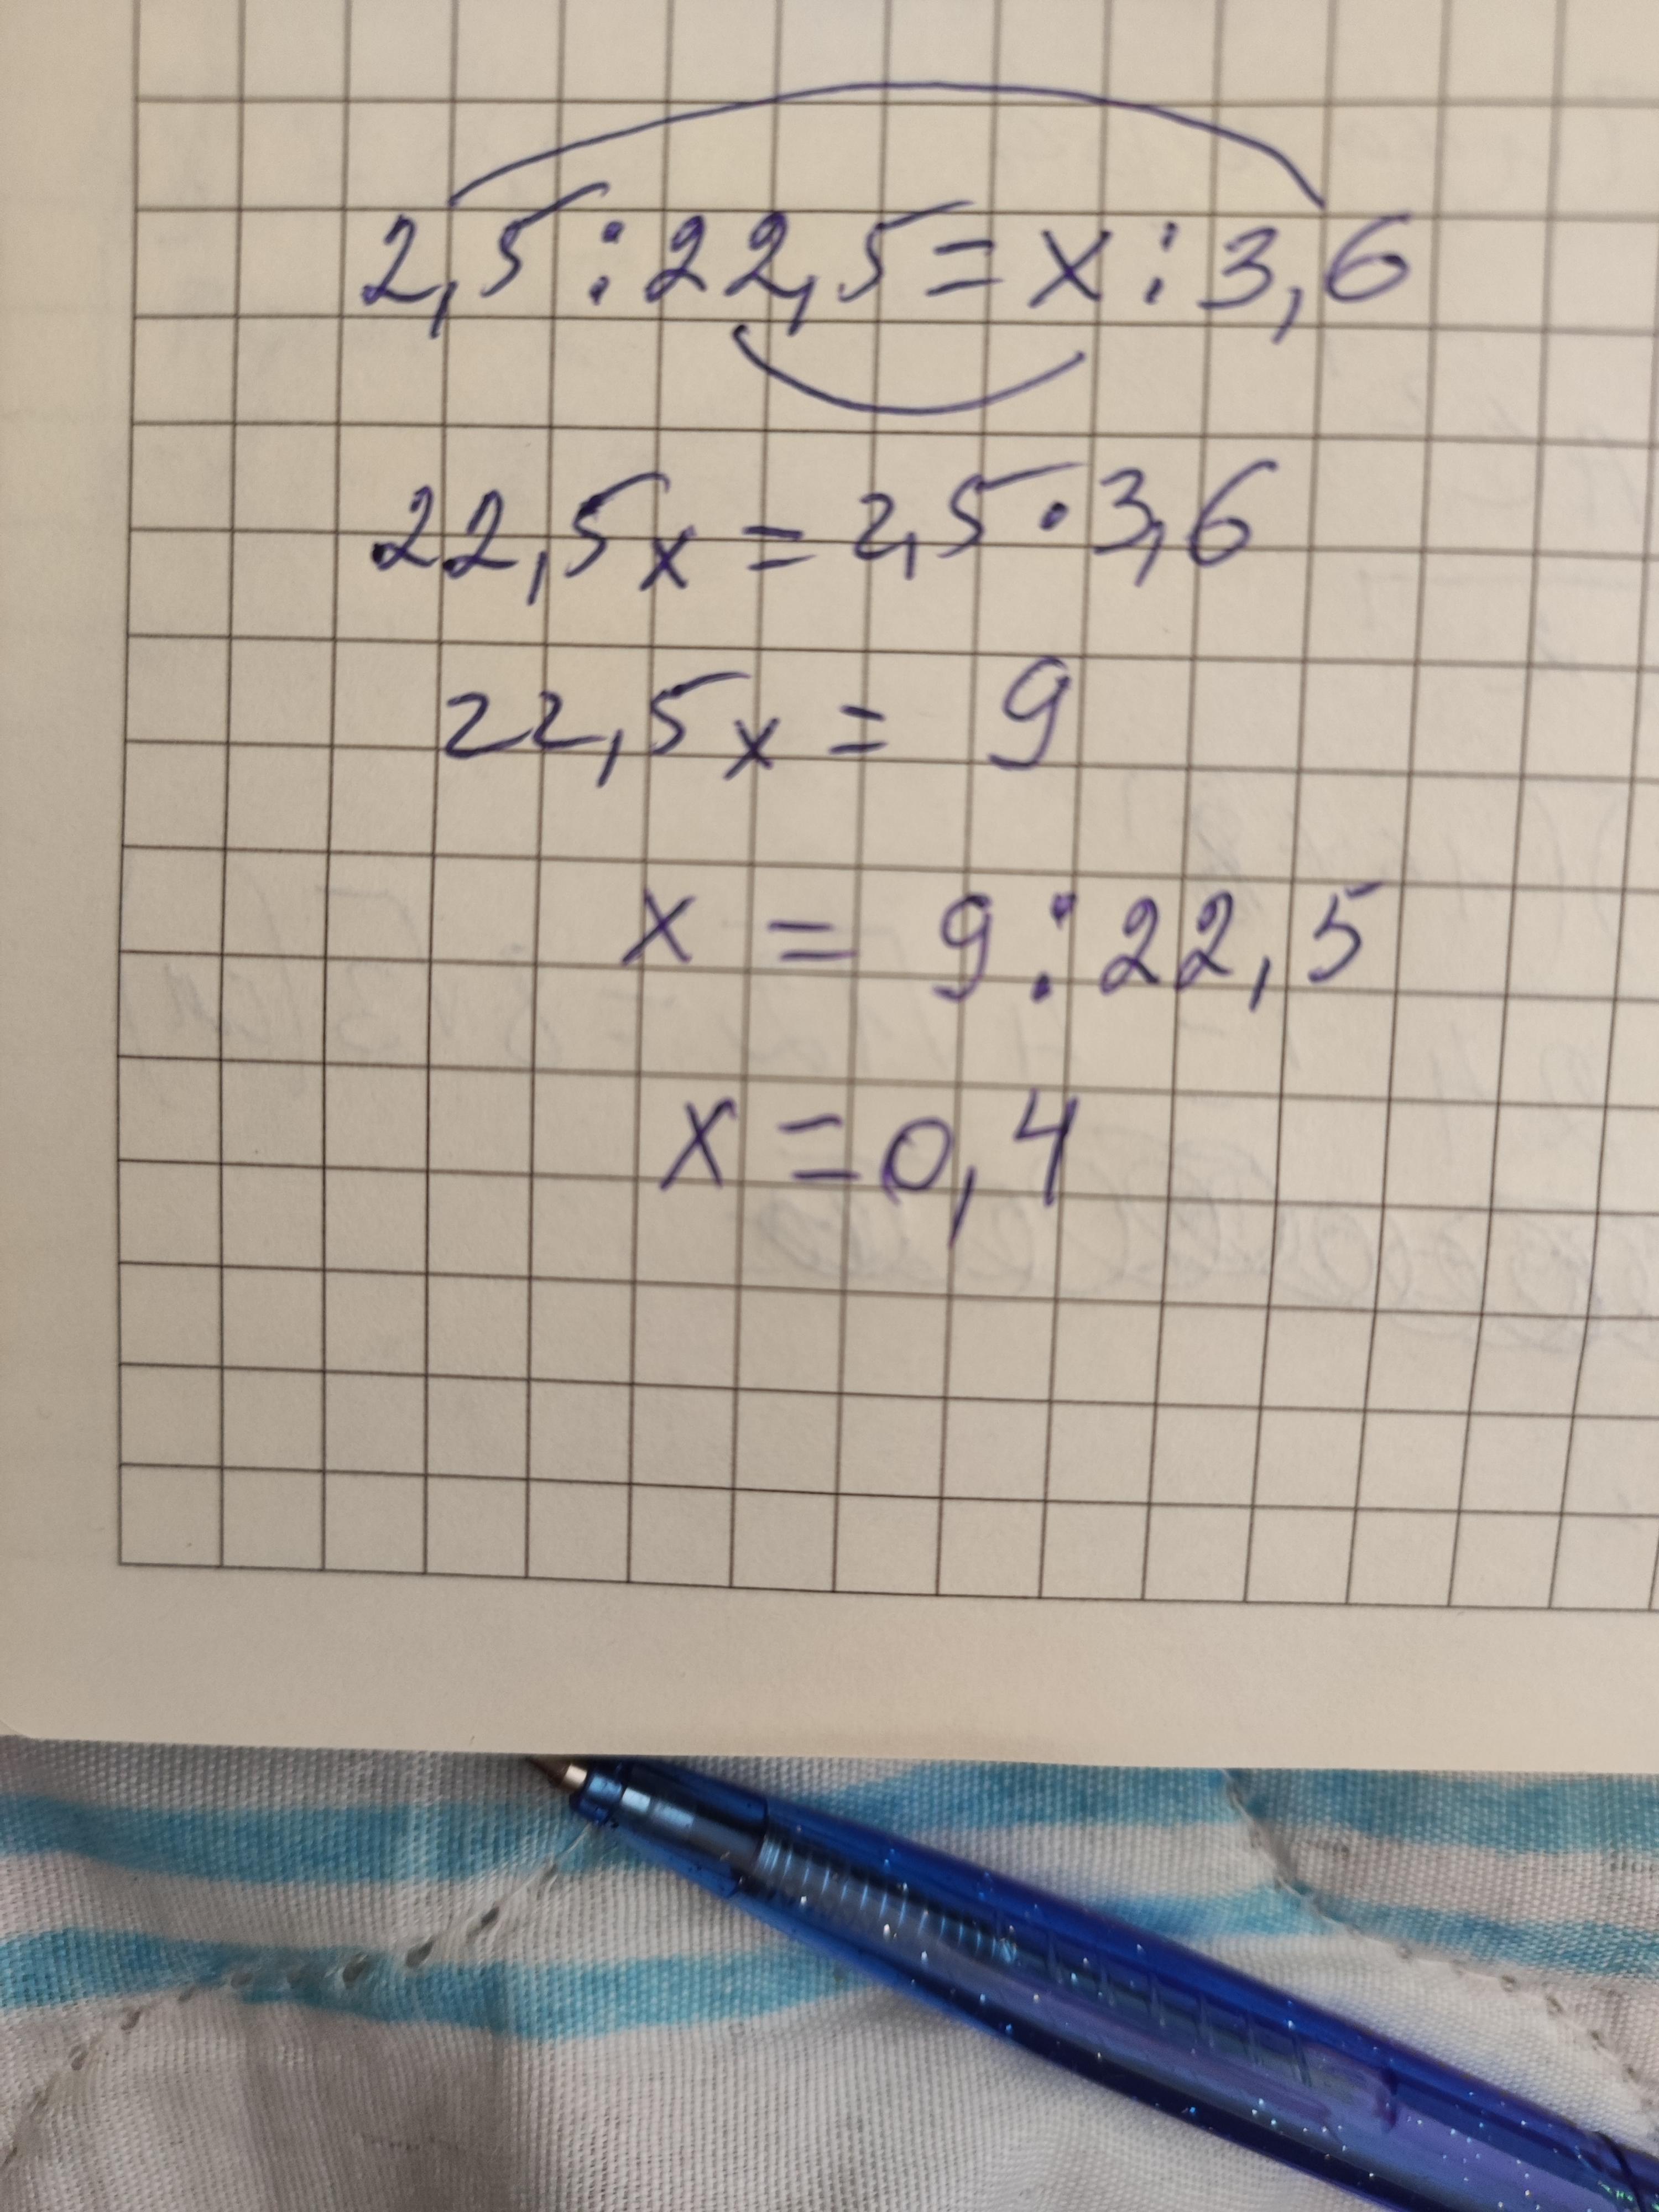 2,5:22,5=x:3,6
22,5x=2,5·3,6
22,5x=9
x=9:22,5
x=0,4